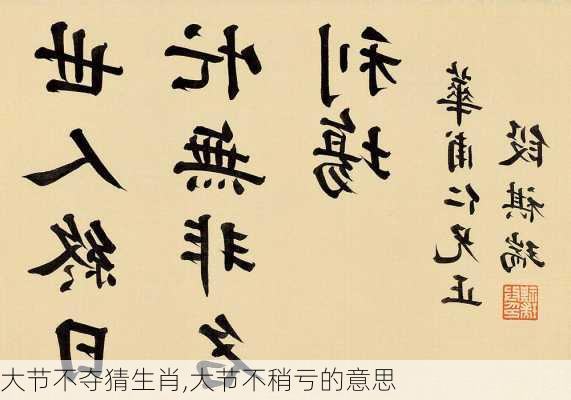 世人終日
忙無非名
利場
華甫仁兄正
段祺瑞
大节不夺猜生肖,大节不稍亏的意思